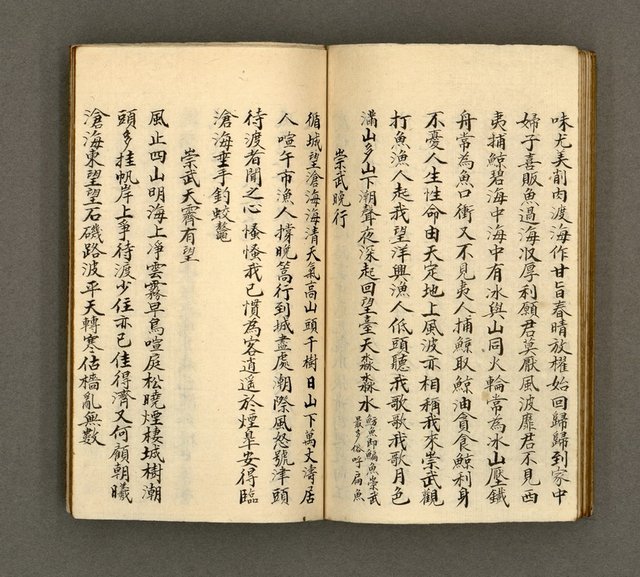 味尤美削肉渡海作甘旨春晴放櫂始回歸歸到家中
婦子喜販魚過海収厚利願君莫厭風波靡君不見西
夷捕鯨碧海中海中有氷與山同火輪常為氷山壓鐵
舟常為魚口衝又不見夷人捕鯨取鯨油貪食鯨利身
不憂人生性命由天定地上風波亦相稱我來崇武觀
打魚漁人起我望洋興漁人低頭聽我歌歌我歌月色
滿山多山下潮聲夜深起回望臺天淼淼水
魴魚即鯿魚崇武
最多俗呼扁魚
崇武晚行
循城望滄海海清天氣高山頭千樹日山下萬丈濤居
人喧午市漁人撐晚篙行到城盡處潮際風怒號津頭
待渡者聞之心慅慅我已慣為客逍遥於煙臯安得臨
滄海垂手釣蛟鼇
崇武天霽有望
風止四山明海上凈雲霧早鳥喧庭松曉煙棲城樹潮
頭多挂帆岸上爭待渡少住亦已佳得濟又何顧朝曦
滄海東望望石磯路波平天轉寒估檣亂無數